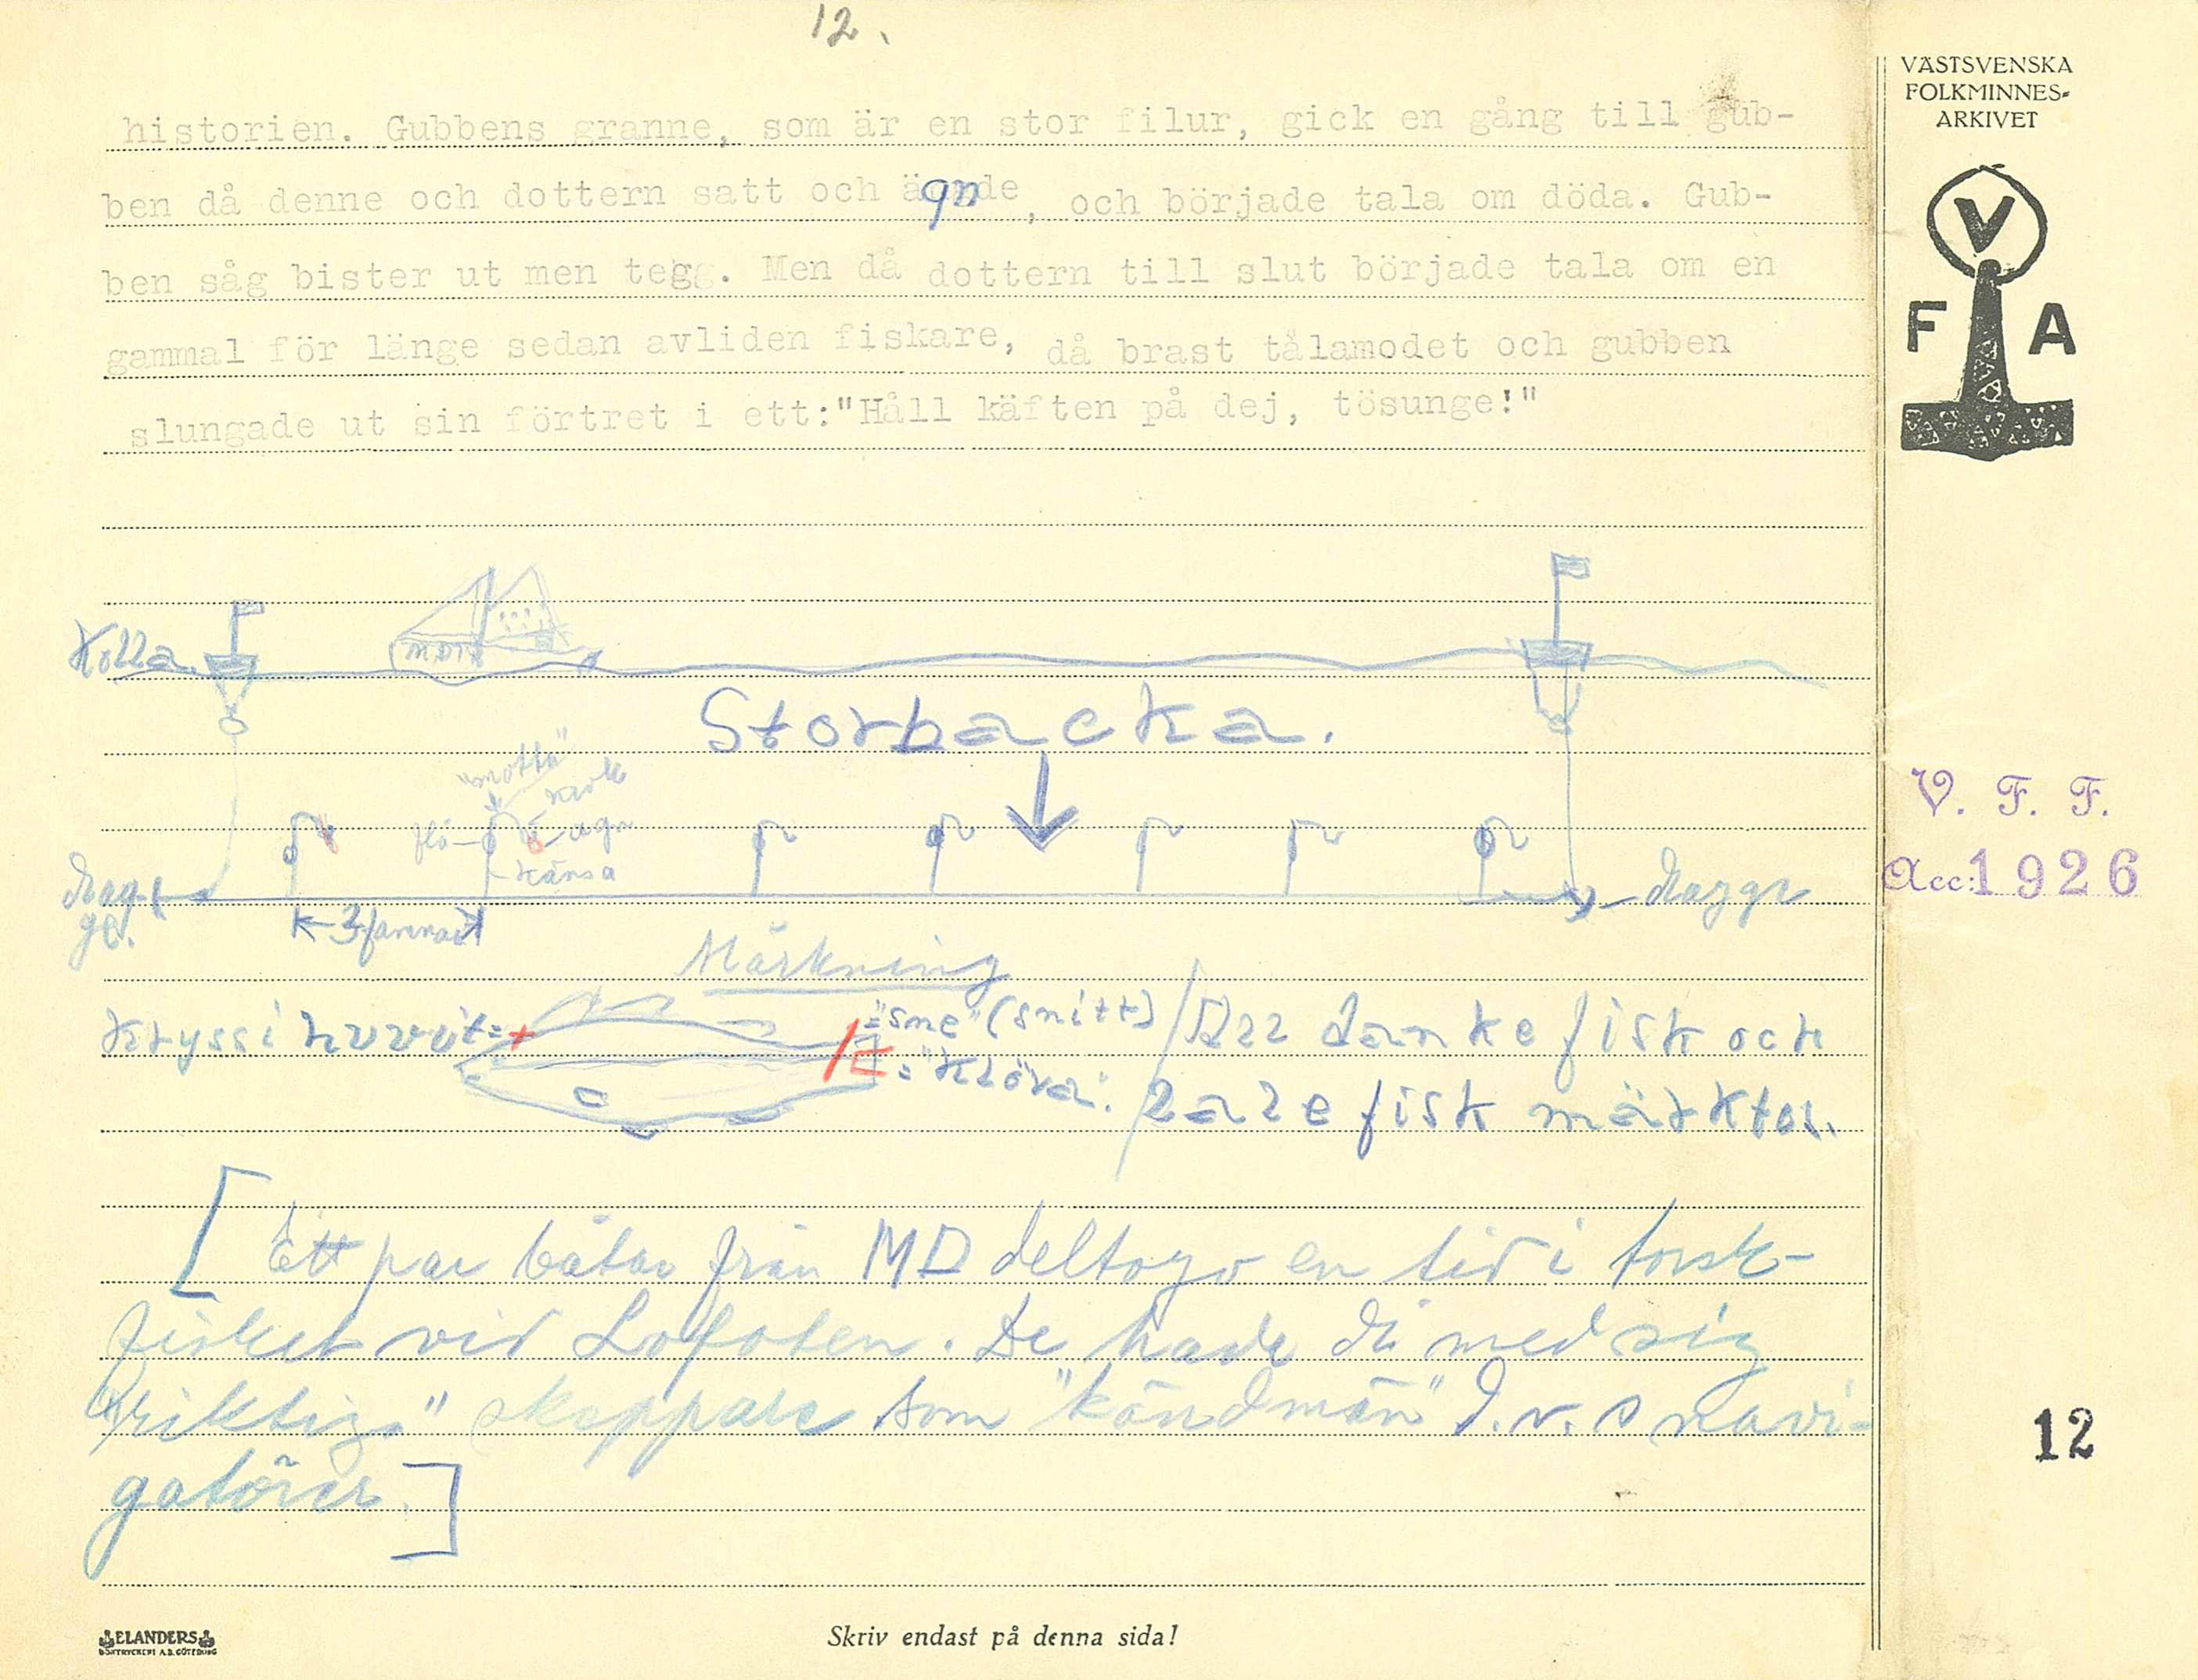 12.
VÄSTSVENSKA
FOLKMINNES-
ARKIVET
V
F A
historien. Gubbens granne, som är en stor filur, gick en gång till gub-
ben då denne och dottern satt och ägnde, och började tala om döda. Gub-
ben såg bister ut men tegg. Men då dottern till slut började tala om en
gammal för länge sedan avliden fiskare, då brast tålamodet och gubben
slungade ut sin förtret i ett:"Håll käften på dej, tösunge!"
Kolla.
Storbacka.
"motta"
krok
flö
agn
känsa
Dragge.
3 famnar
Dragge
V. F. F.
Acc:1926
Märkning
Kryss i huvut=+
="sne" (snitt)
="Klöva".
All danke fisk och
lale fisk märktes.
[Ett par båtar från MD deltogo en tid i torsk-
fisket vid Lofoten. De hade då med sig
"riktiga" skeppare som "kändmän" d.v.s navi-
gatörer.]
12
ELANDERS
BOKTRYCKERI A.B. GÖTEBORG
Skriv endast på denna sida!